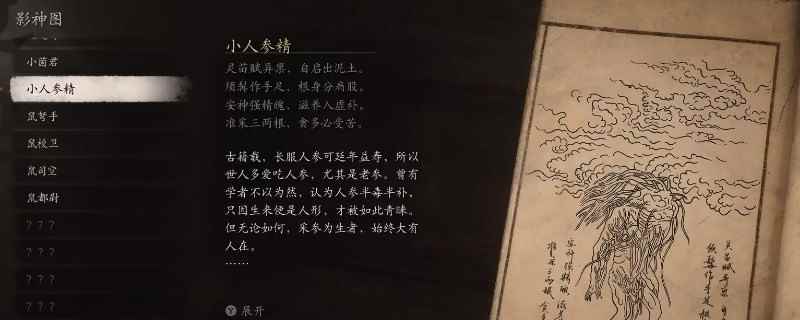 影神图
小菌君
小人参精
鼠弩手
鼠校卫
鼠司空
鼠都尉
？？？
？？？
？？？
？？？
小人参精
灵苗赋异禀，自启出泥土。
须髯作手足，根身分肩股。
安神强精魄，滋养人虚补。
准采三两根，贪多必受苦。
古籍载，长服人参可延年益寿，所以
世人多爱吃人参，尤其是老参。曾有
学者不以为然，认为人参半毒半补，
只因生来便是人形，才被如此青睐。
但无论如何，采参为生者，始终大有
人在。
……
展开
灵苗赋异禀
须髯作手足
安神强精魄
准采三两根